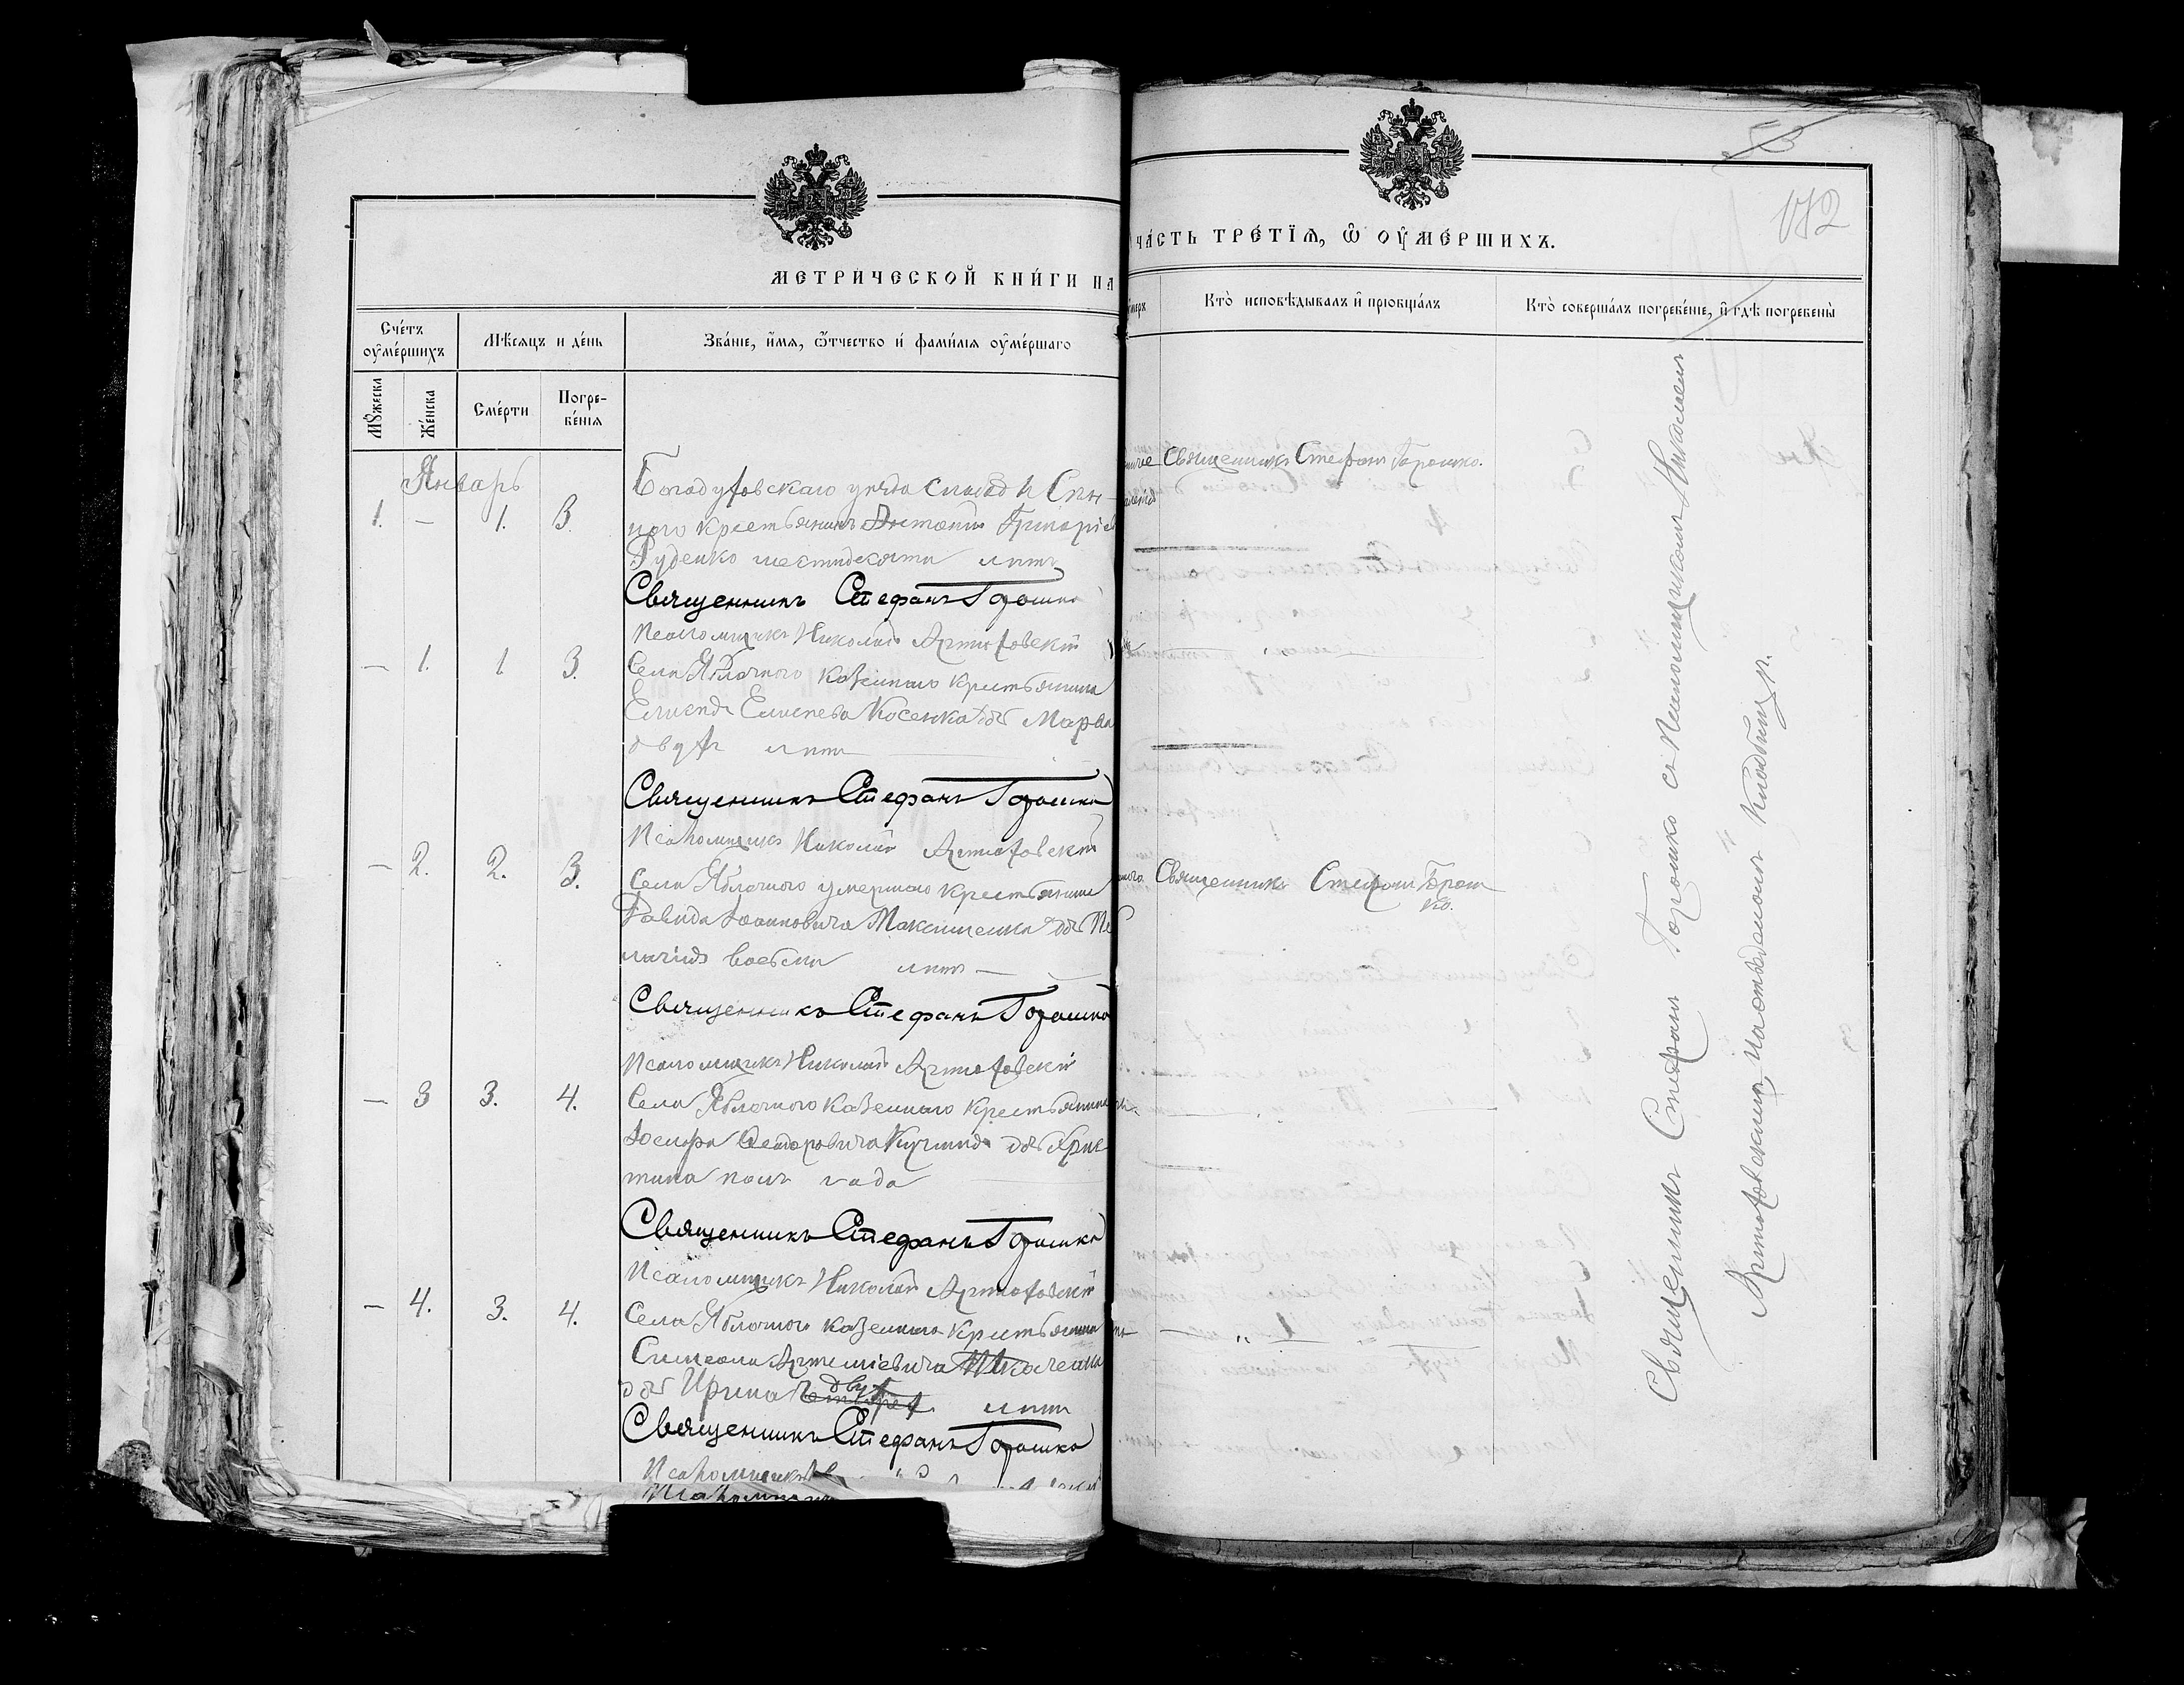 МЕТРИЧЕСКОЙ КНИГИ НА
Счетъ оумершихъ
Мѣсяцъ и день
Званіе, имя, отчество и фамилія оумершаго
Мужеска
Женска
Смерти
Погребенія
Январь
1. — 1. 3.
уѣзда
наго крестьянинъ Антоній Григоріев
Руденко шестидесяти лѣтъ
Священникъ Стефанъ Горошко
Псаломщикъ Николай Артюховскій
— 1. 1 3.
Села Яблочного казеннаго крестьянина
Косенка дочь Марѳа
двухъ лѣтъ
Священникъ Стефанъ Горошко
Псаломщикъ Николай Артюховскій
— 2. 2. 3.
Села Яблочного умершаго крестьянина
Давида Іоанновича Максименка дочь
лѣтъ
Священникъ Стефанъ Горошко
Псаломщикъ Николай Артюховскій
— 3 3. 4.
Села Яблочного казеннаго крестьянина
Іосифа дочь Хрис
тина полъ года
Священникъ Стефанъ Горошко
Псаломщикъ Николай Артюховскій
— 4. 3. 4.
Села Яблочного казеннаго крестьянина
Симеона Артеміевича
дочь Ирина двухъ лѣтъ
Священникъ Стефанъ Горошко
Псаломщикъ
ЧАСТЬ ТРЕТІЯ, Ѡ ОУМЕРШИХЪ.
172
Кто исповѣдывалъ и пріобщалъ
Кто совершалъ погребеніе, и гдѣ погребены
Священникъ Стефанъ Горошко.
Священникъ Стефанъ Горош
ко.
Священникъ Стефанъ Горошко съ Псаломщикомъ Николаемъ
Артюховскимъ, на отведенномъ кладбищѣ.